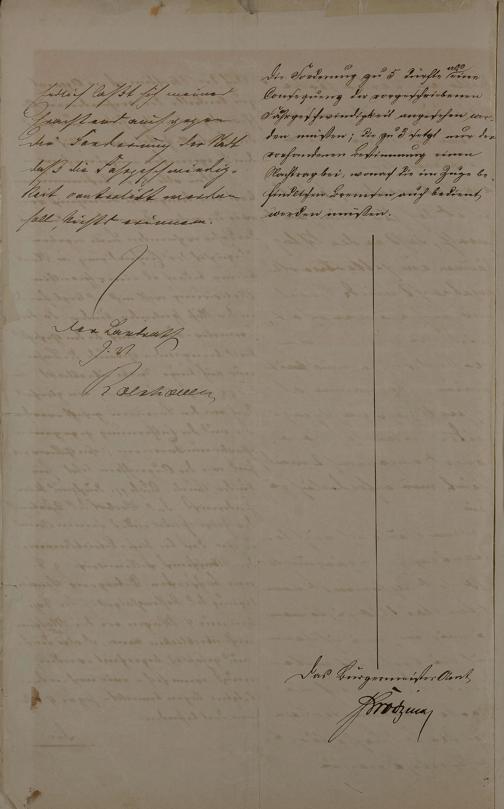 läßt sich meines
Erachtens auch gegen
die Forderung der Stadt
daß die Fahrgeschwindig-
keit verkürzt werden
soll, nichts erinnern.
Der Landrath
J. V.
Die Forderung zu 5 dürfte als eine
Consequenz der vorgeschriebenen
Fahrgeschwindigkeit angesehen wer-
den müssen; die zu 8 setzt nur der
vorhandenen Bestimmung einen
Nachtrag bei, wonach die im Zuge be-
findlichen Bremsen auch bedient
werden müssen.
Das Bürgermeister Amt,